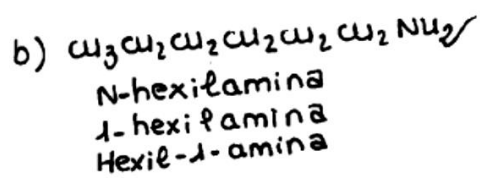 b) CH₃CH₂CH₂CH₂CH₂CH₂NH₂
N-hexilamina
1-hexilamina
Hexil-1-amina